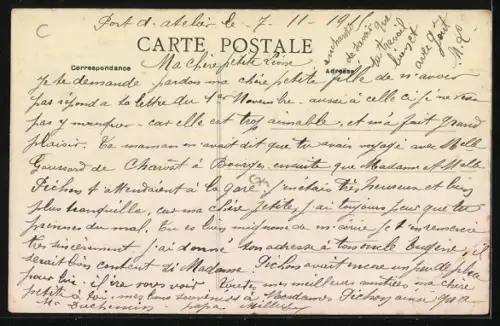 C
Port d'atelier le 7-11-191
CARTE POSTALE
Correspondance
Adresse
Ma chère petite
enchanté de savoir que
ta travail
avec goût
Je te demande pardon ma chère petite fille de n'avoir
pas répondu à ta lettre du 1er Novembre aussi à celle ci je ne veux
pas y manquer car elle est trop aimable, et m'a fait grand
plaisir. Ta maman m'avait dit que tu avais voyagé avec Melle
de Charost à Bourges, ensuite que Madame et Melle
Pichon t'attendaient à la gare, j'étais très heureux et bien
plus tranquille, car ma chère petite, j'ai toujours peur que tu
prennes du mal, Tu es bien mignonne de m'écrire je t'en remercie
très sincèrement j'ai donné ton adresse à ton oncle Eugène, il
serait bien content si Madame Pichon avait une petite place
pour lui il ira vous voir Toutes mes meilleures amitiés ma chère
petite à toi, mes bons souvenirs à Mesdames Pichon ainsi qu'à
Me Duchemin papa